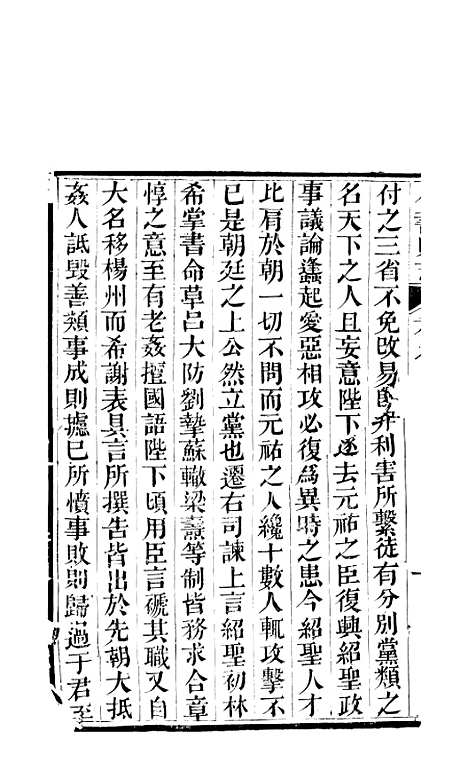 付之三省不免改易簡弃利害所繫徒有分別黨類之
名天下之人且妄意陛下遂去元祐之臣復興紹聖政
事議論蠭起愛惡相攻必復爲異時之患今紹聖人才
比肩於朝一切不問而元祐之人纔十數人輒攻擊不
已是朝廷之上公然立黨也遷右司諫上言紹聖初林
希掌書命草呂大防劉摯蘇轍梁燾等制皆務求合章
惇之意至有老姦擅國語陛下頃用臣言褫其職又自
大名移楊州而希謝表具言所撰告皆出於先朝大抵
姦人詆毀善類事成則攄已所憤事敗則歸過于君至